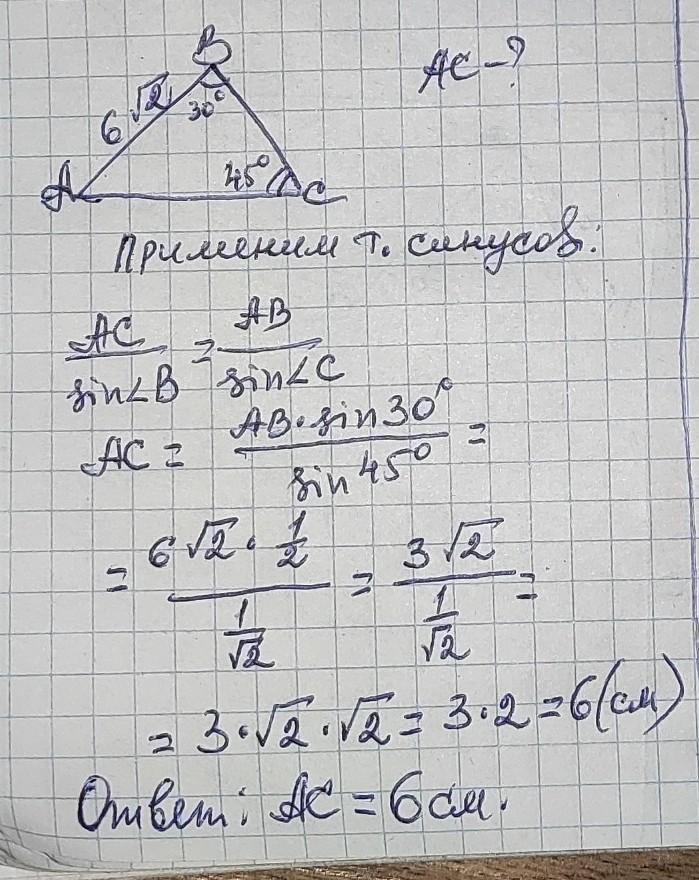 B
AC - ?
6√2
30°
A
45°
C
Применим т. синусов:
AC/sin∠B = AB/sin∠C
AC = AB·sin30°/sin45° =
= (6√2 · 1/2)/(1/√2) = 3√2/(1/√2) =
= 3·√2·√2 = 3·2 = 6(см)
Ответ: AC = 6см.